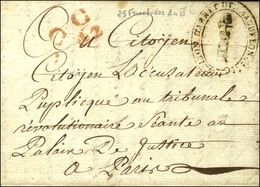 25 Fructidor An II
Au Citoyen
Citoyen L'accusateur
Puplicque au tribunale
révolutionaire Séante au
Palais De Justice
a Paris